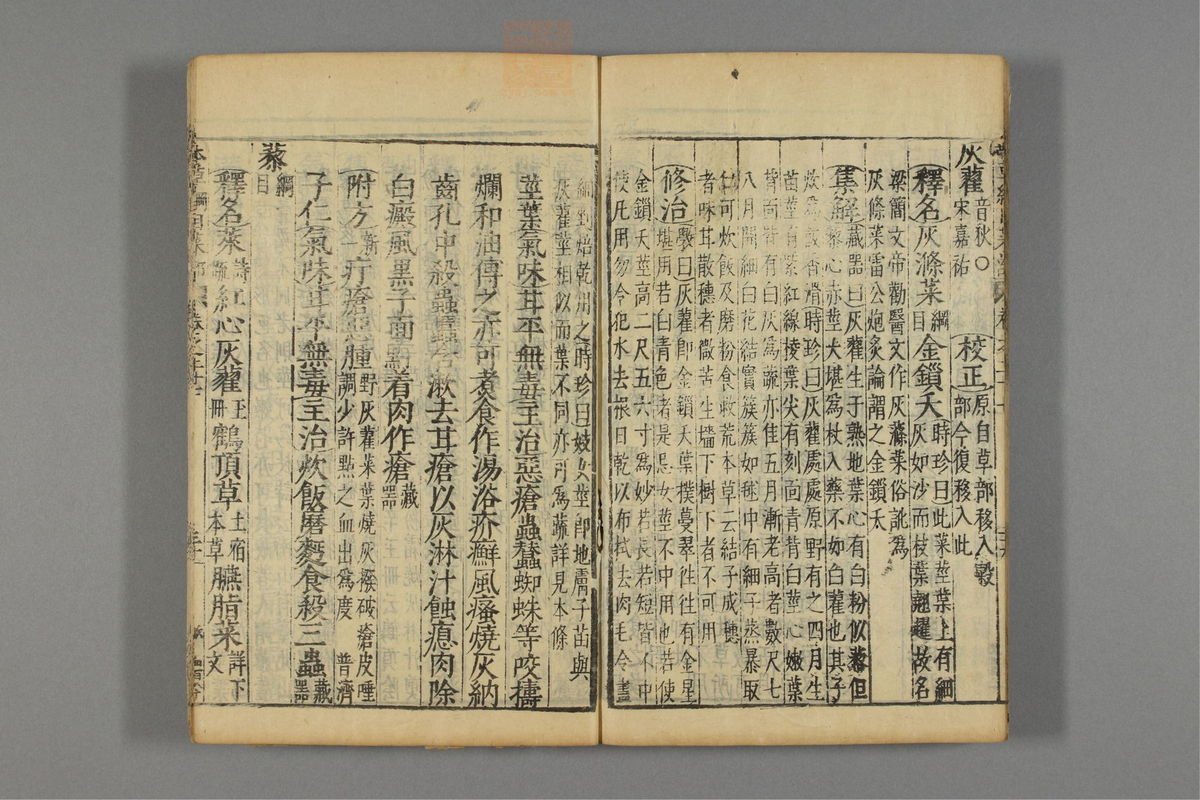 灰藋音秋〇宋嘉祐 校正原自草部移入穀部今復移入此
釋名灰滌菜綱目金鎖夭時珍曰此菜莖葉上有細灰如沙而枝葉翹耀故名
梁簡文帝勸醫文作灰滌菜俗訛為
灰條菜雷公炮炙論謂之金鎖夭
集解藏器曰灰藋生于熟地葉心有白粉似藜但
藜心赤莖大堪為杖入藥不如白藋也其子
炊為飯香滑時珍曰灰藋處處原野有之四月生
苗莖有紫紅線稜葉尖有刻面青背白莖心嫩葉
背面皆有白灰為蔬亦佳五月漸老高者數尺七
八月開細白花結實簇簇如毬中有細子蒸暴取
仁可炊飯及磨粉食救荒本草云結子成穗
者味甘散穗者微苦生墻下樹下者不可用
修治斅曰灰藋即金鎖夭葉撲蔓翠往往有金星
堪用若白青色者是忌女莖不中用也若使
金鎖夭莖高二尺五六寸為妙若長若短皆不中
使凡用勿令犯水去根日乾以布拭去肉毛令盡
細剉焙乾用之時珍曰妓女莖即地膚子苗與
灰藋莖相似而葉不同亦可為蔬詳見本條
莖葉氣味甘平無毒主治惡瘡蟲蠶蜘蛛等咬擣
爛和油傅之亦可煮食作湯浴疥癬風瘙燒灰納
齒孔中殺蟲𧏾含漱去甘瘡以灰淋汁蝕瘜肉除
白癜風黑子面䵟着肉作瘡藏器
附方新一疔瘡惡腫野灰藋菜葉燒灰撥破瘡皮唾調少許點之血出為度 普濟
子仁氣味甘平無毒主治炊飯磨麪食殺三蟲藏器
藜綱目
釋名萊詩疏紅心灰藋玉冊鶴頂草土宿本草臙脂菜詳下文